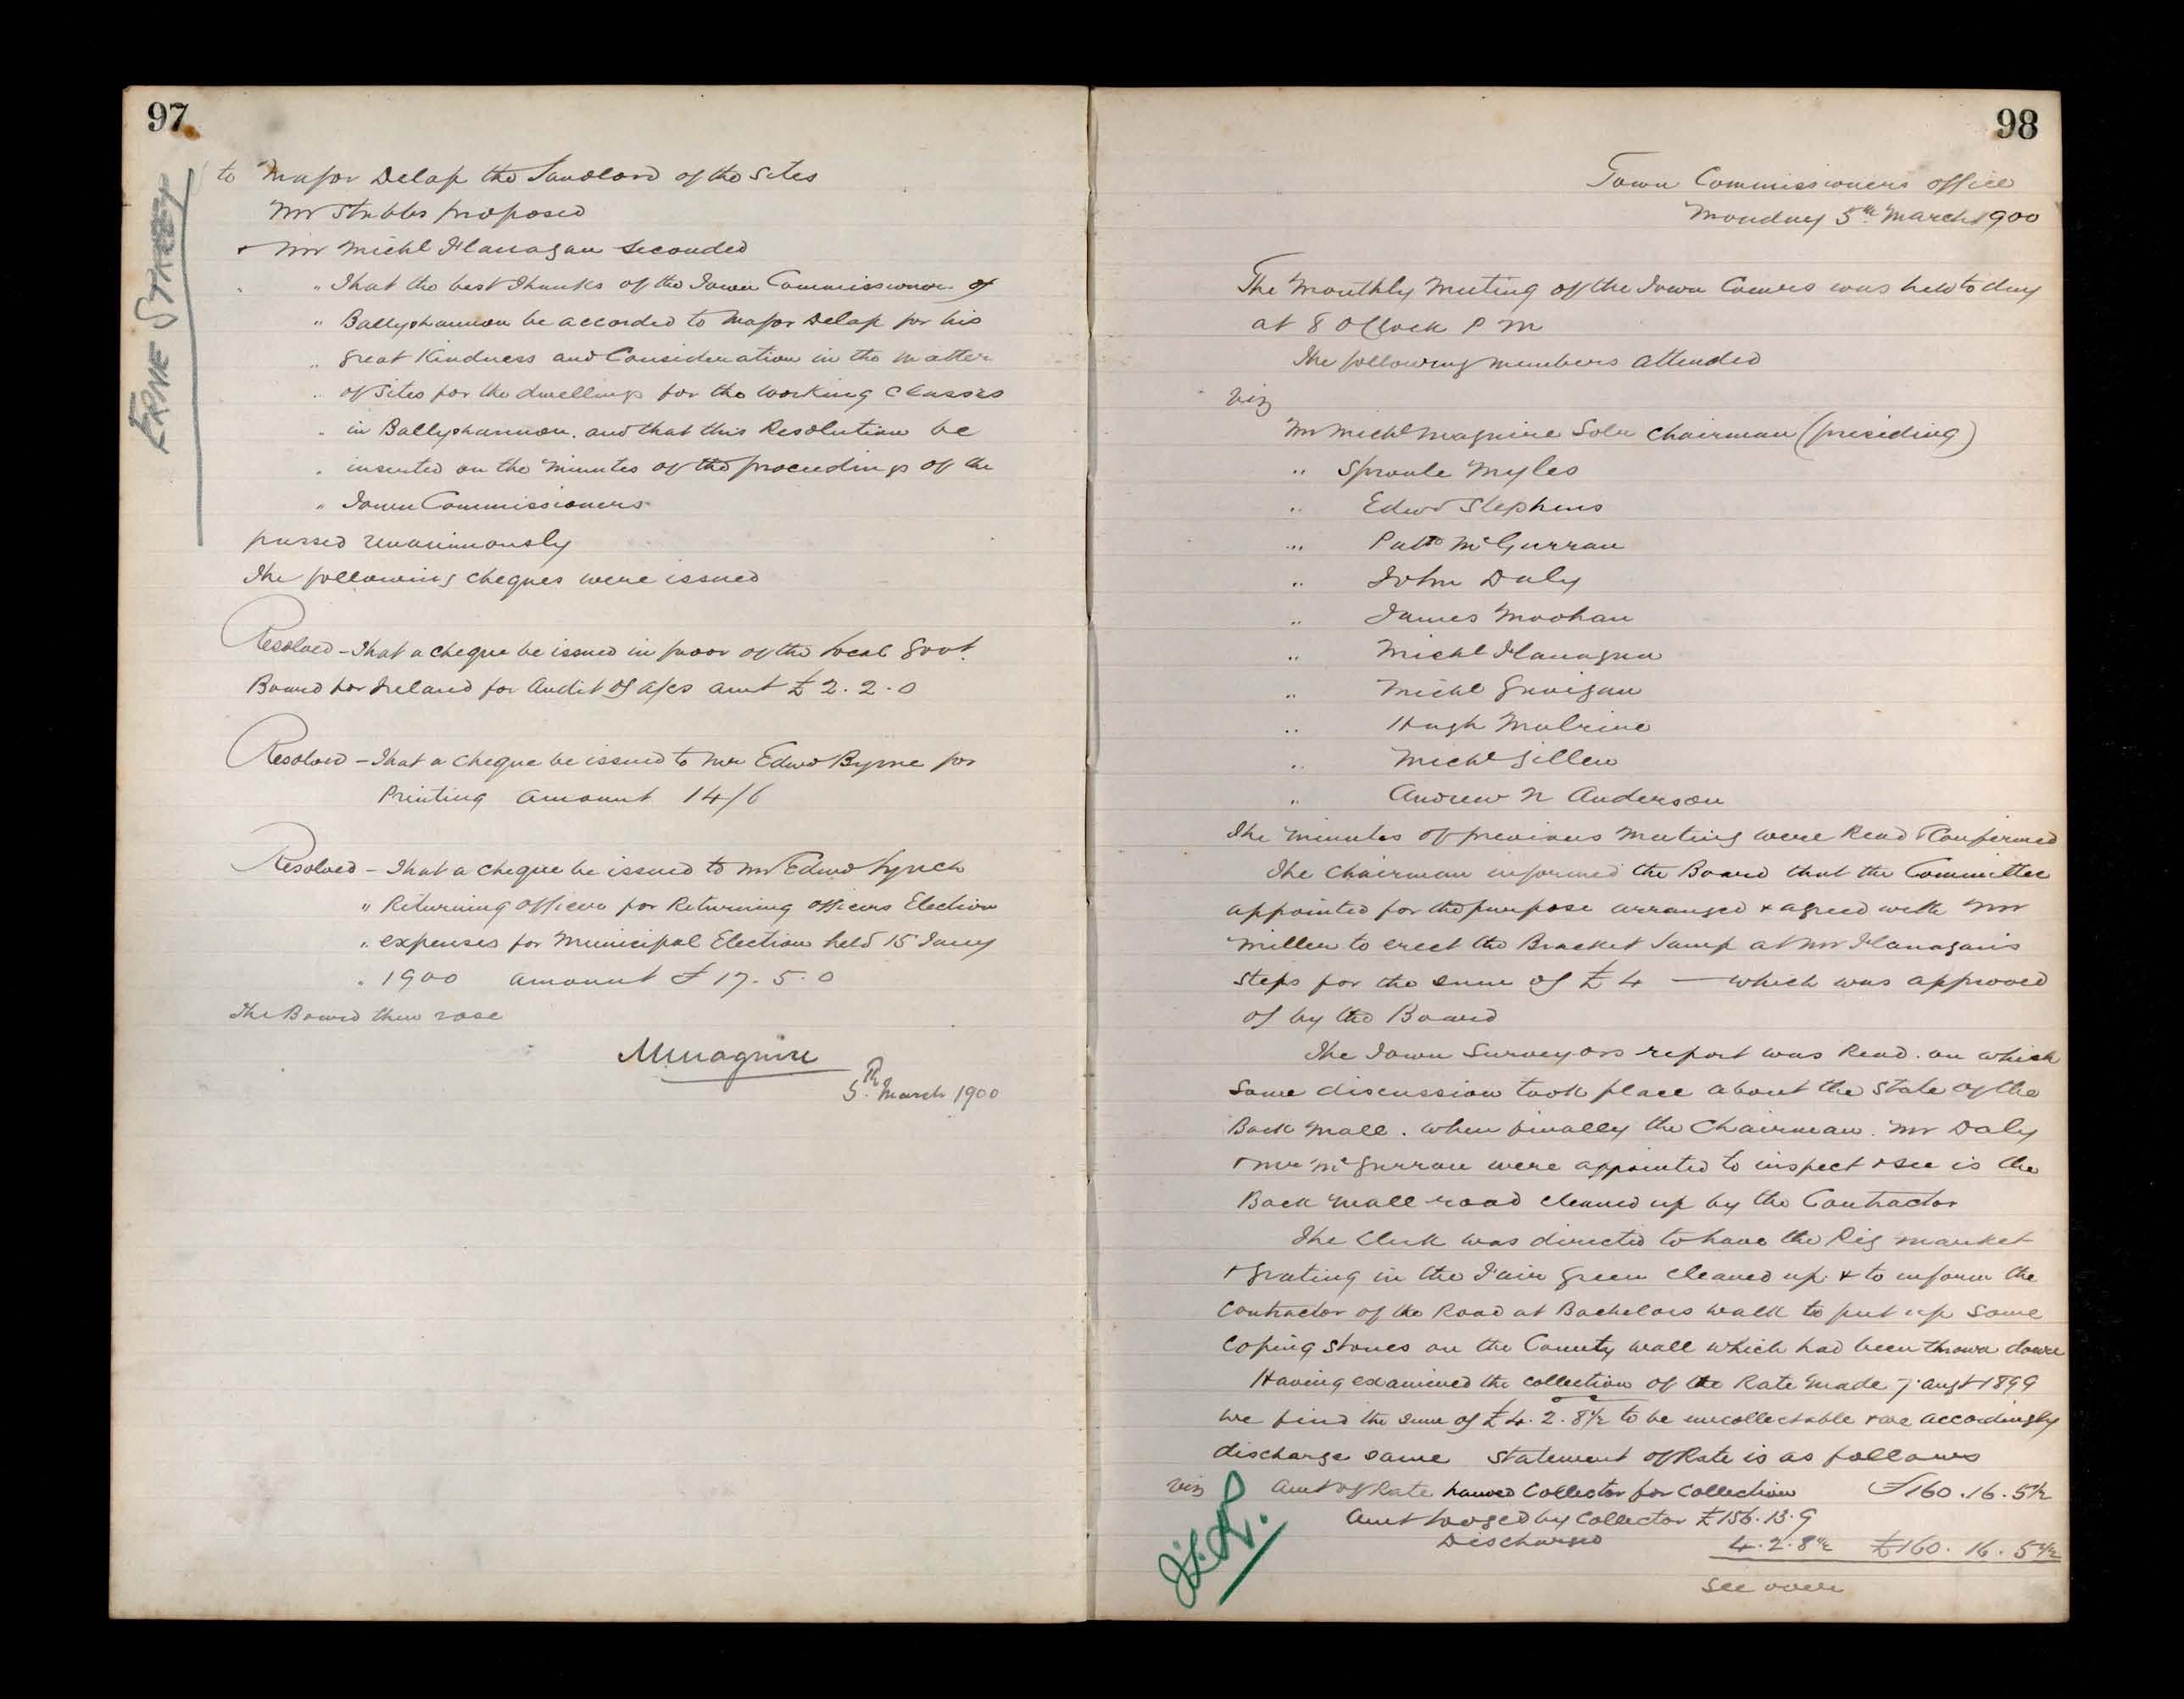 97
ERNE STREET
to Major Delap the Landlord of the Sites
Mr Stubbs proposed
+ Mr Michl Flanagan Seconded
" That the best Thanks of the Town Commissioners of
" Ballyshannon be accorded to Major Delap for his
" great Kindness and Consideration in the matter
" of Sites for the dwellings for the working Classes
" in Ballyshannon. and that this Resolution be
" inserted on the minutes of the proceedings of the
" Town Commissioners
passed unanimously
The following cheques were issued
Resolved - That a cheque be issued in favor of the Local Govt.
Board for Ireland for Audit of a/cs amt £ 2. 2. 0
Resolved - That a cheque be issued to Mr Edwd Byrne for
Printing amount 14/6
Resolved - That a cheque be issued to Mr Edwd Lynch
" Returning Officer for Returning officers Election
" expenses for Municipal Election held 15 Jany
" 1900 amount £ 17. 5. 0
The Board then rose
MMaguire
5th March 1900
98
Town Commissioners office
Monday 5th March 1900
The Monthly Meeting of the Town Comers was held to day
at 8 O'Clock P M
The following members attended
viz
Mr Michl Maguire Solr Chairman (presiding)
" Sproule Myles
" Edwd Stephens
" Patk McGurran
" John Daly
" James Moohan
" Michl Flanagan
" Michl Gavigan
" Hugh Mulrine
" Michl Gillen
" Andrew N Anderson
The minutes of previous meeting were Read & Confirmed
The Chairman informed the Board that the Committee
appointed for the purpose arranged & agreed with Mr
Miller to erect the Bracket Lamp at Mr Flanagan's
Steps for the sum of £ 4 — which was approved
of by the Board
The Town Surveyors report was Read. on which
Some discussion took place about the State of the
Back Mall. when finally the Chairman. Mr Daly
+ Mr McGurran were appointed to inspect & see is the
Back Mall road cleaned up by the Contractor
The Clerk was directed to have the Pig market
& grating in the Fair Green cleaned up. & to inform the
Contractor of the Road at Bachelors walk to put up Some
Coping Stones on the County wall which had been thrown down
Having examined the collection of the Rate made 7 augt 1899
we find the sum of £ 4. 2. 8½ to be uncollectable & we accordingly
discharge same Statement of Rate is as follows
viz Amt of Rate handed Collector for Collection £160. 16. 5½
Amt Lodged by Collector £156. 13. 9
Discharged 4. 2. 8½ £160. 16. 5½
See over